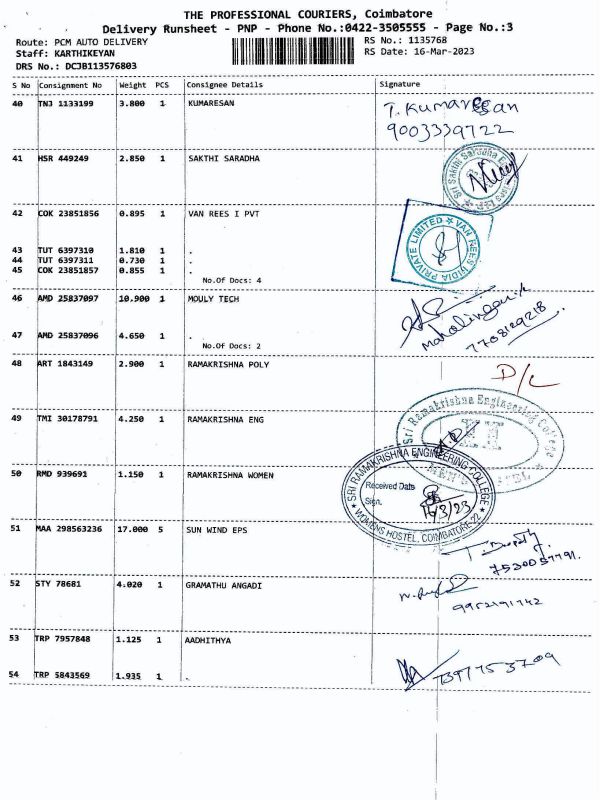 THE PROFESSIONAL COURIERS, Coimbatore
Delivery Runsheet - PNP - Phone No.:0422-3505555 - Page No.:3
Route: PCM AUTO DELIVERY RS No.: 1135768
Staff: KARTHIKEYAN RS Date: 16-Mar-2023
DRS No.: DCJB113576803
S No Consignment No Weight PCS Consignee Details Signature
40 TNJ 1133199 3.800 1 KUMARESAN T. Kumaresan
9003339722
41 HSR 449249 2.850 1 SAKTHI SARADHA
Sri Sakthi Saradha
42 COK 23851856 0.895 1 VAN REES I PVT
VAN REES INDIA PRIVATE LIMITED
43 TUT 6397310 1.810 1 .
44 TUT 6397311 0.730 1 .
45 COK 23851857 0.855 1 .
No.Of Docs: 4
46 AMD 25837097 10.900 1 MOULY TECH
Mahalingam
7708129218
47 AMD 25837096 4.650 1 .
No.Of Docs: 2
48 ART 1843149 2.900 1 RAMAKRISHNA POLY D/L
49 TMI 30178791 4.250 1 RAMAKRISHNA ENG
Sri Ramakrishna Engineering College
50 RMD 939691 1.150 1 RAMAKRISHNA WOMEN
SRI RAMAKRISHNA ENGINEERING COLLEGE
Received Date
Sign.
16/3/23
WOMENS HOSTEL, COIMBATORE-22
51 MAA 298563236 17.000 5 SUN WIND EPS
52 STY 78681 4.020 1 GRAMATHU ANGADI
9952191742
53 TRP 7957848 1.125 1 AADHITHYA
54 TRP 5843569 1.935 1 .